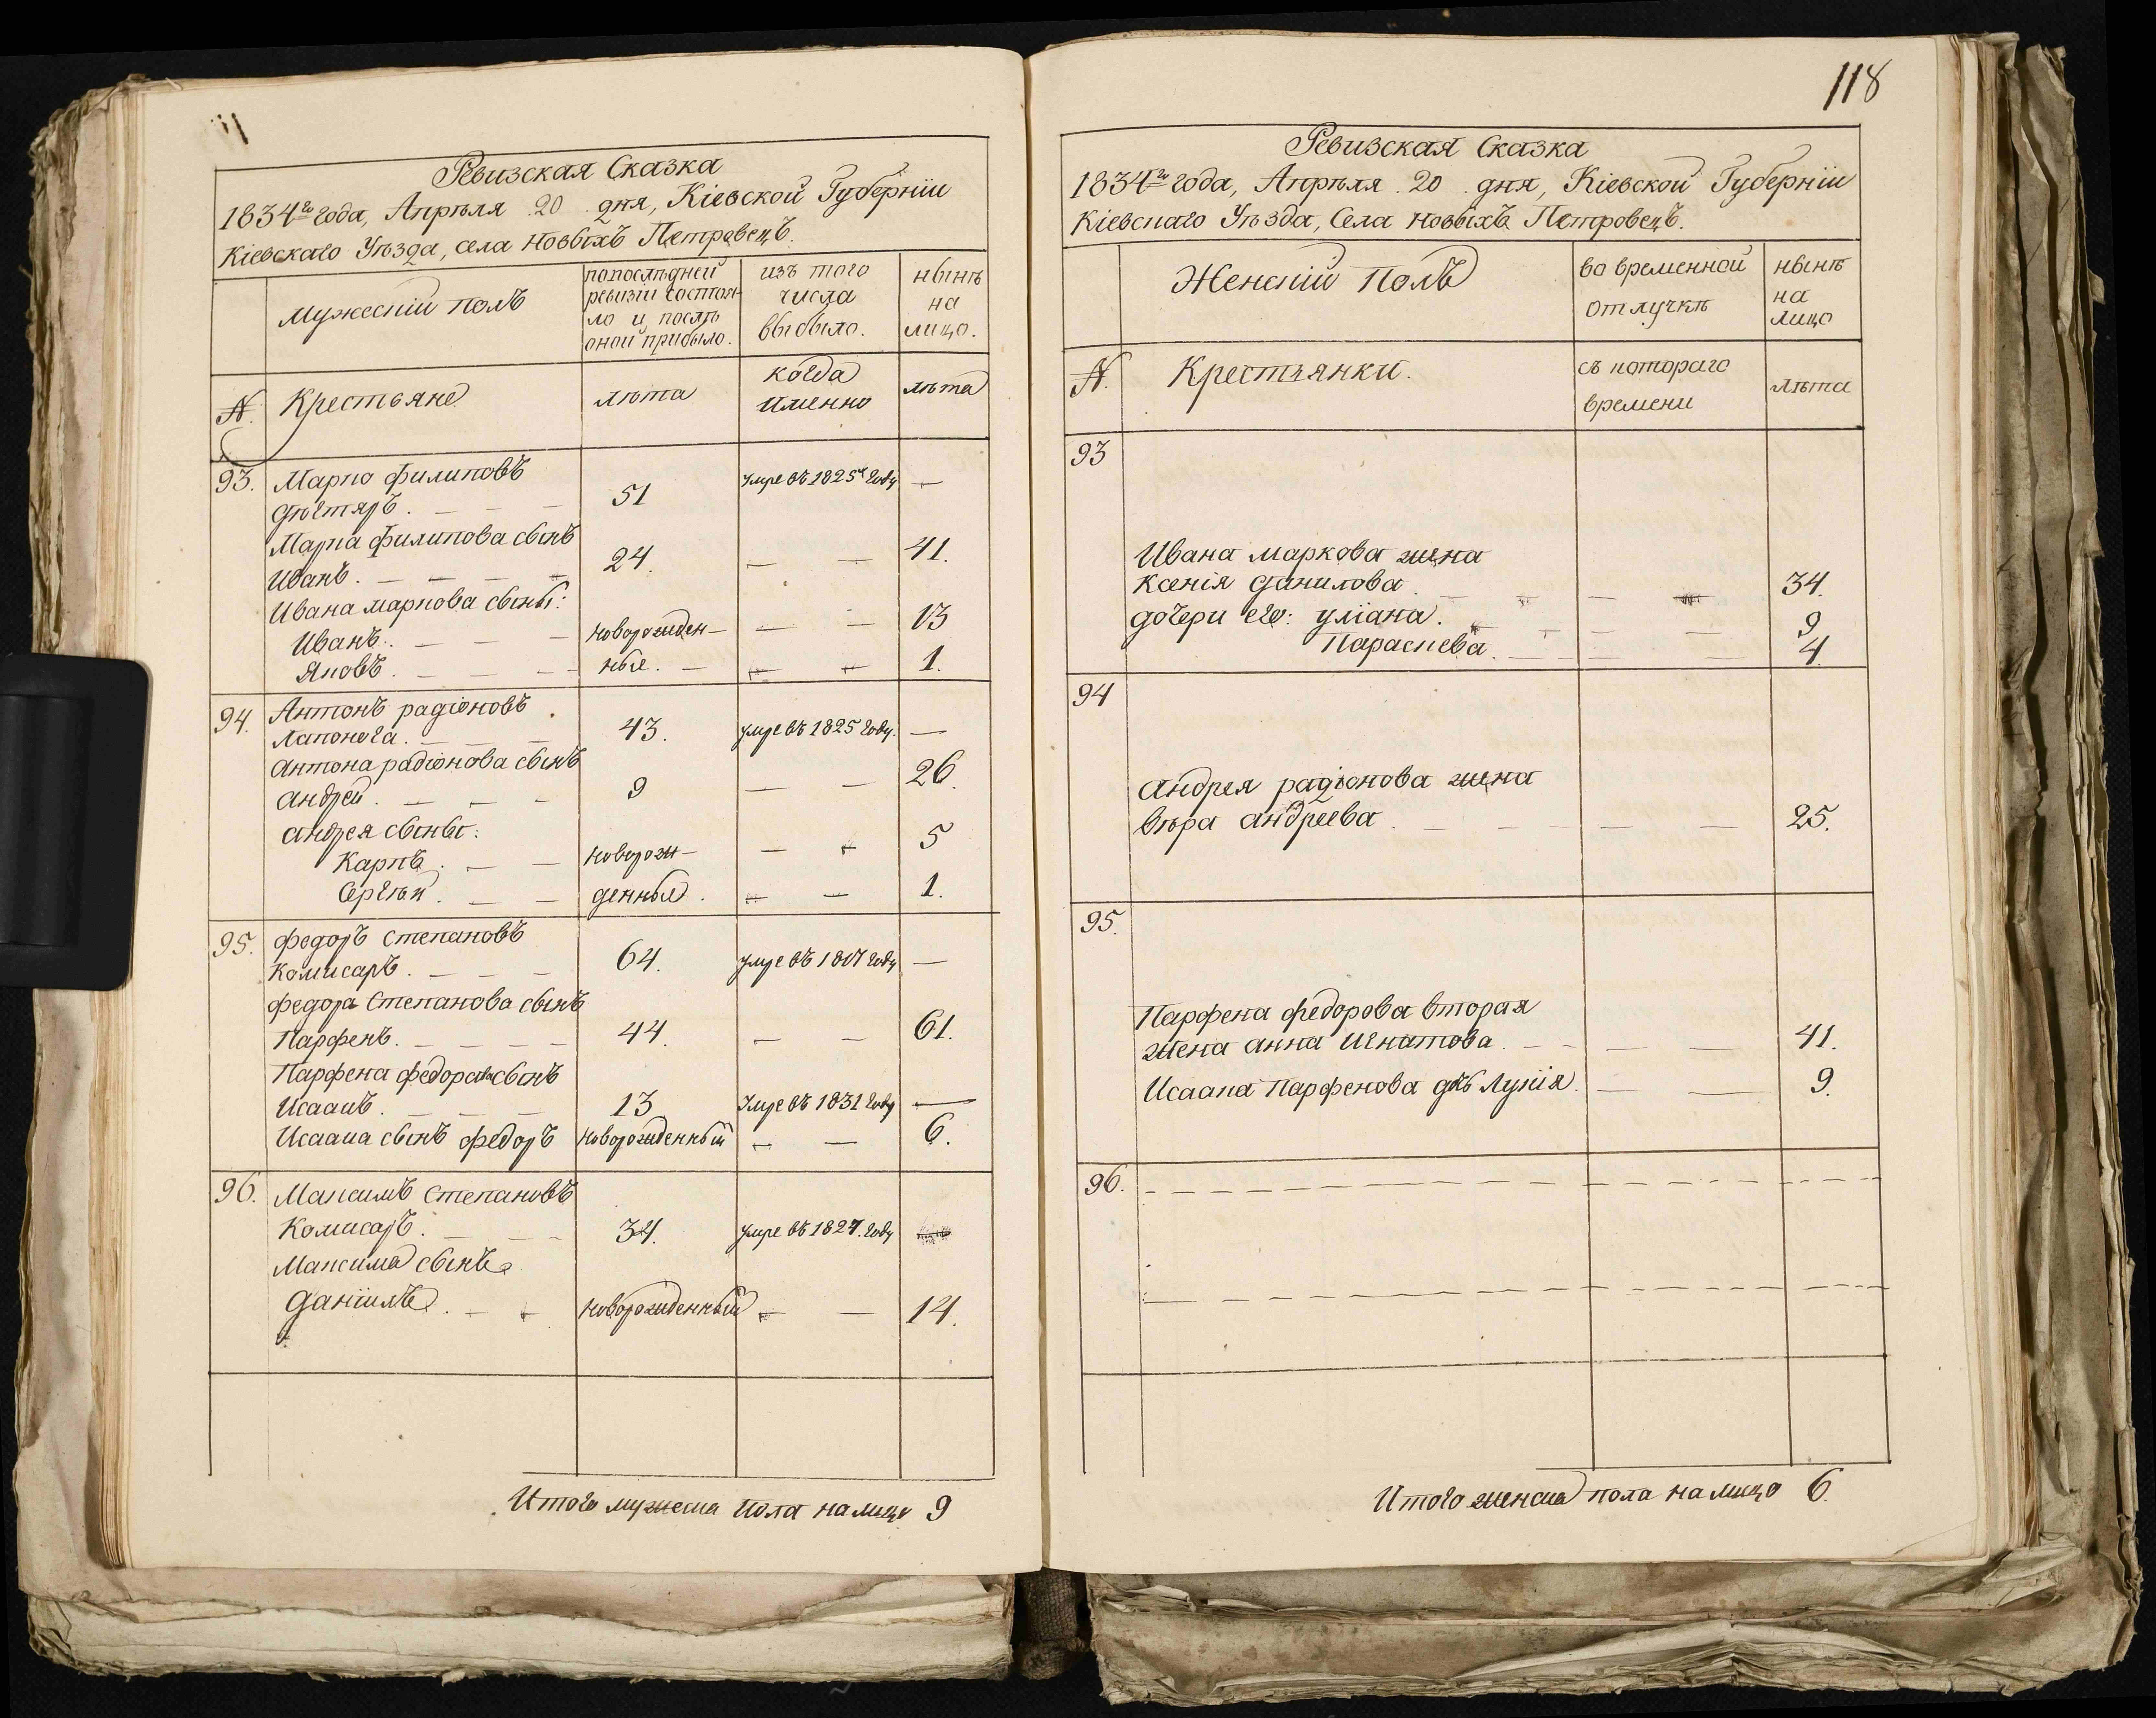 Ревизская Сказка
1834го года, Апрѣля 20 дня, Кіевской Губерніи
Кіевскаго Уѣзда, села Новыхъ Петровецъ.
мужескій полъ
попослѣдней
ревизіи состоя-
ло и послѣ
оной прибыло.
изъ того
числа
выбыло.
нынѣ
на
лицо.
N.
Крестьяне
лѣта
когда
именно
лѣта
93. Марко филиповъ умре въ 1825м году —
дѣгтяръ. — — — 51
Марка филипова сынъ
Иванъ. — — — — 24. — — 41.
Ивана маркова сыны:
Иванъ. — — — новорожден— — — 13
Яковъ. — — — ные. — — — 1.
94. Антонъ радіоновъ
Лапонога. — — — 43. умре въ 1825 году. —
Антона радіонова сынъ
андрей. — — — 9 — — 26.
андрея сыны:
Карпъ. — — новорож— — — 5
Сергѣй. — — денные. — — 1.
95. федоръ степановъ
Комисаръ. — — — 64. умре въ 1817 году —
федора Степанова сынъ
Парфенъ. — — — — 44. — — 61.
Парфена федорова сынъ
Исаакъ. — — — 13 Умре въ 1831 году —
Исаака сынъ федоръ новорожденный — — 6.
96. Максимъ степановъ
Комисаръ. — — — 34. умре въ 1827. году
Максима сынъ
даніилъ. — — новорожденный — — 14.
Итого мужеска пола налицо 9
118
Ревизская Сказка
1834го года, Апрѣля 20 дня, Кіевской Губерніи
Кіевскаго Уѣзда, Села новыхъ Петровецъ.
Женскій полъ
во временной
отлучкѣ
нынѣ
на
лицо
N.
Крестьянки.
съ котораго
времени
лѣта
93
Ивана маркова жена
Ксенія данилова — — — — 34.
дочери его: уліана. — — — — 9
Параскева. — — — — 4
94
андрея радіонова жена
вѣра андреева — — — — 25.
95.
Парфена федорова вторая
жена анна игнатова. — — — — 41.
Исаака парфенова дчь Лукія. — — 9.
96.
Итого женска пола налицо 6.